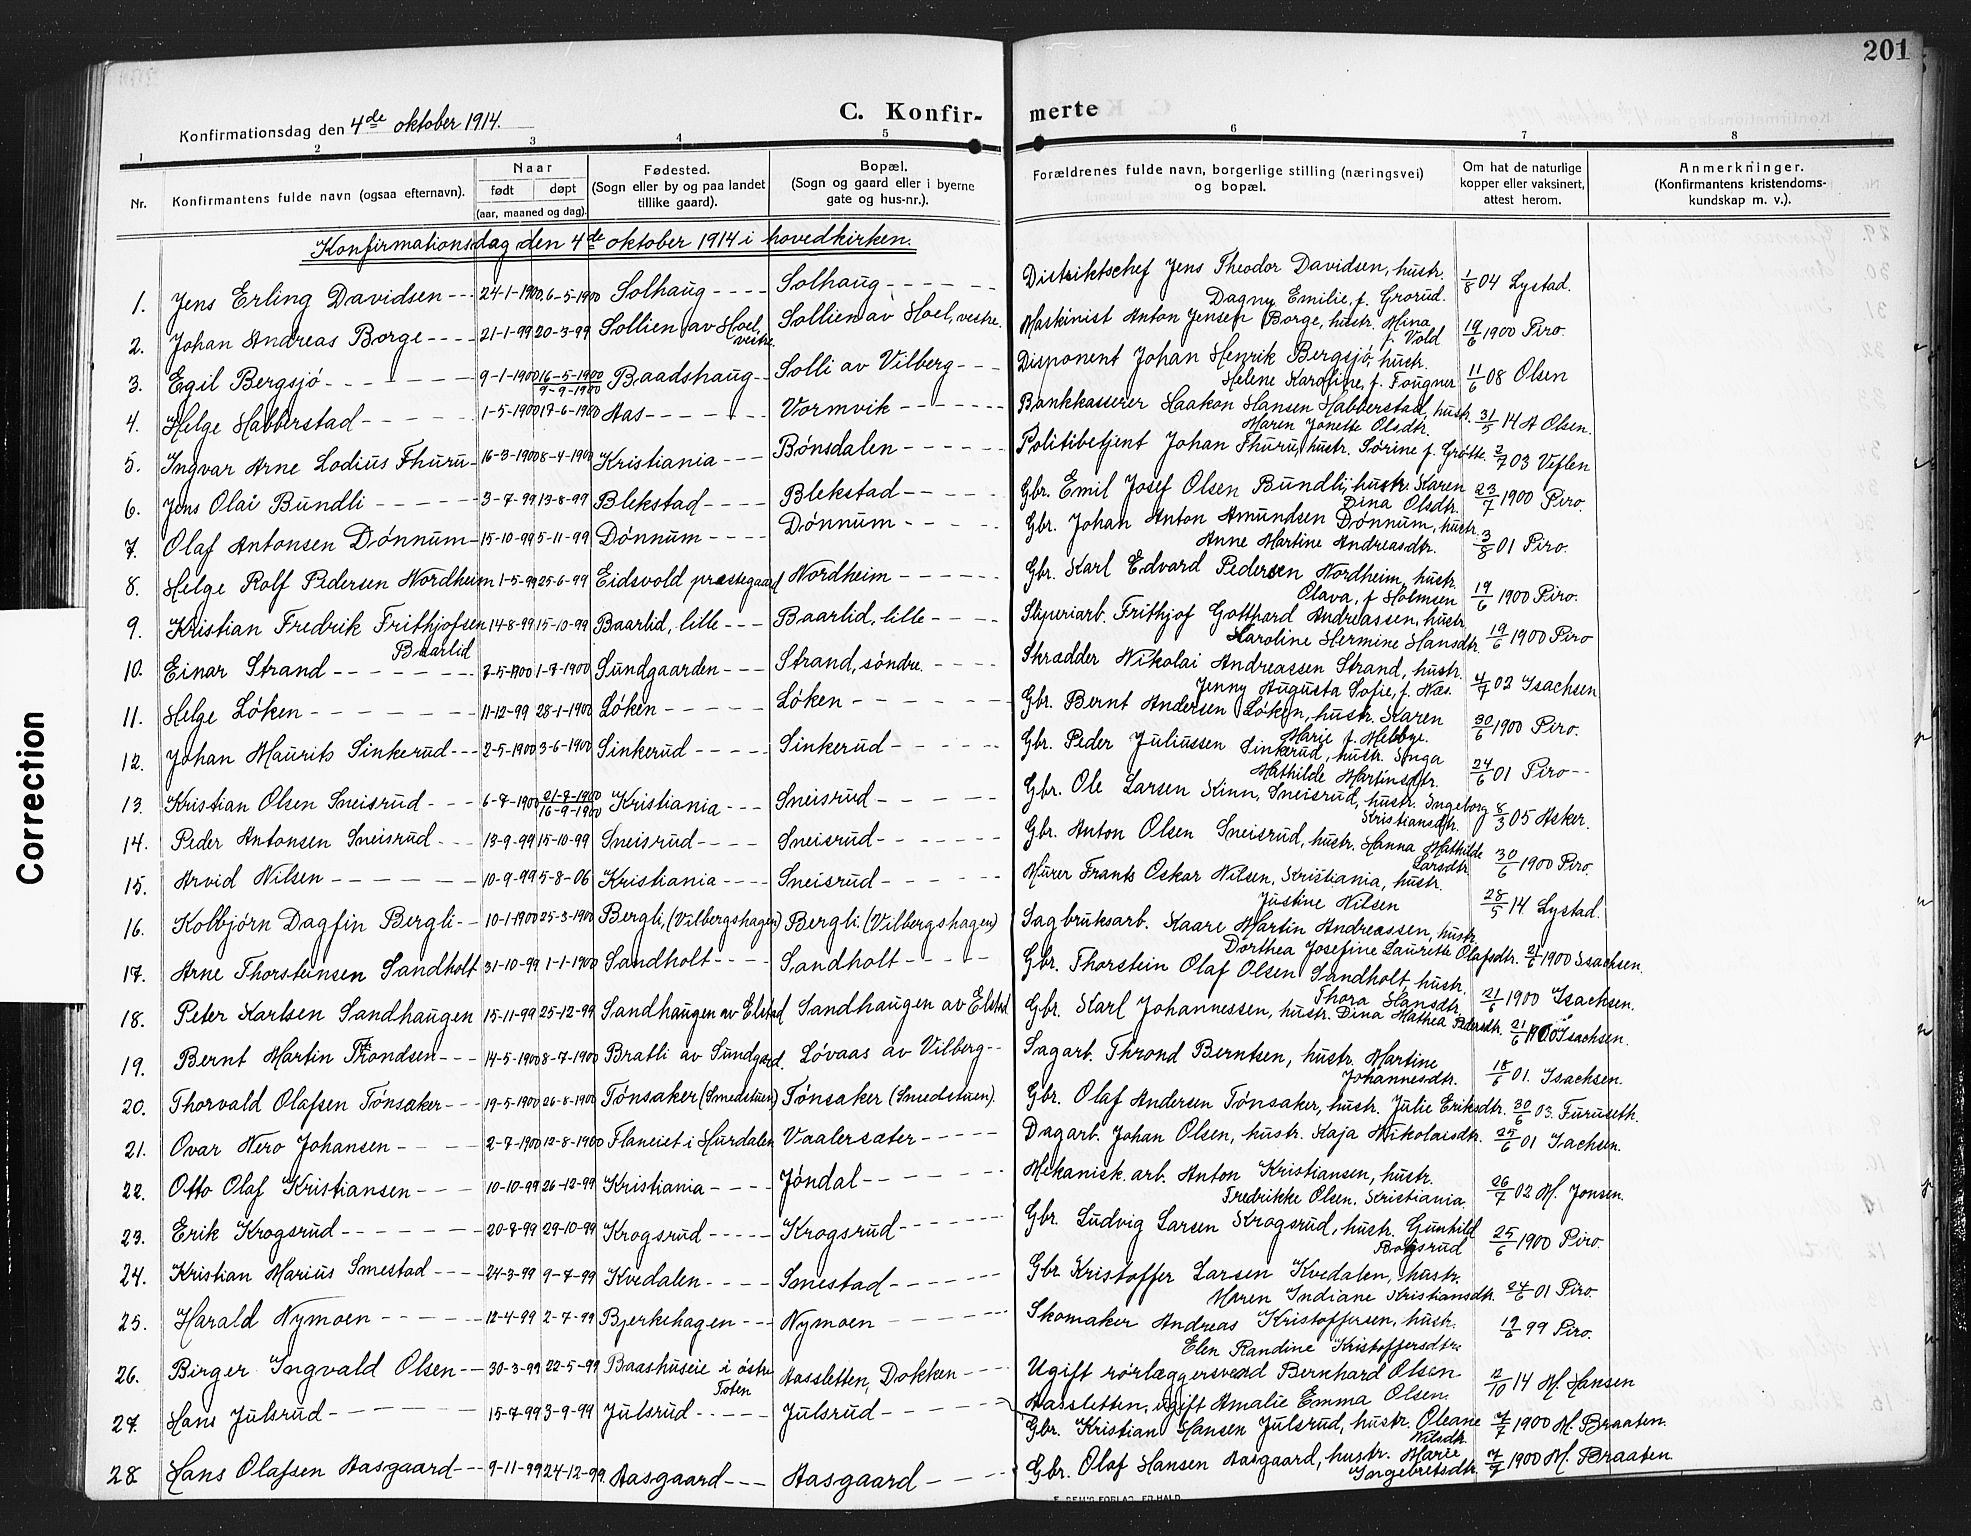 201
C. Konfir-merte
Konfirmationsdag den 4de oktober 1914.
1 2 3 4 5 6 7 8
Nr.
Konfirmantens fulde navn (ogsaa efternavn).
Naar
født
døpt
(aar, maaned og dag).
Fødested.
(Sogn eller by og paa landet
tillike gaard).
Bopæl.
(Sogn og gaard eller i byerne
gate og hus-nr.).
Forældrenes fulde navn, borgerlige stilling (næringsvei)
og bopæl.
Om hat de naturlige
kopper eller vaksinert,
attest herom.
Anmerkninger.
(Konfirmantens kristendoms-
kundskap m. v.).
Konfirmationsdag den 4de oktober 1914 i hovedkirken.
1. Jens Erling Davidsen 24-1-1900 6-5-1900 Solhaug Solhaug Distriktschef Jens Theodor Davidsen, hustr. 1/8 04 Lystad.
Dagny Emilie, f. Grorud.
2. Johan Andreas Borge 21-1-99 20-3-99 Sollien av Hoel, Sollien av Hoel, vestre. Maskinist Anton Jensen Borge, hustr. Mina 19/6 1900 Piro.
vestre f. Vold
3. Egil Bergsjø 9-1-1900 16-5-1900 Baadshaug Solli av Vilberg Disponent Johan Henrik Bergsjø, hustr. 11/6 08 Olsen
9-9-1900 Helene Karoline, f. Fougner
4. Helge Habberstad 1-5-1900 17-6-1900 Aas Vormvik Bankkasserer Haakon Hansen Habberstad, hustr. 31/5 14 A Olsen.
Maren Jonette Olsdtr.
5. Ingvar Arne Lodius Thuru 16-3-1900 8-4-1900 Kristiania Bønsdalen Politibetjent Johan Thuru, hustr. Sørine f. Grøtte. 2/7 03 Veflen
6. Jens Olai Bundli 3-7-99 13-8-99 Blekstad Blekstad Gbr. Emil Josef Olsen Bundli, hustr. Karen 23/7 1900 Piro.
Dina Olsdtr.
7. Olaf Antonsen Dønnum 15-10-99 5-11-99 Dønnum Dønnum Gbr. Johan Anton Amundsen Dønnum, hustr. 3/8 01 Piro.
Anne Martine Andreasdtr.
8. Helge Rolf Pedersen Nordheim 1-5-99 25-6-99 Eidsvold prestegaard Nordheim Gbr. Karl Edvard Pedersen Nordheim, hustr. 19/6 1900 Piro.
Olava, f. Holmsen
9. Kristian Fredrik Frithjofsen 14-8-99 15-10-99 Baarlid, lille Baarlid, lille Stiperiarb. Frithjof Gotthard Andreassen, hustr. 19/6 1900 Piro
Baarlid Karoline Hermine Hansdtr.
10. Einar Strand 7-5-1900 1-7-1900 Sundgaarden Strand, søndre. Skrædder Nikolai Andreassen Strand, hustr. 4/7 02 Isachsen
Jenny Augusta Sofie, f. Næs.
11. Helge Løken 11-12-99 28-1-1900 Løken Løken Gbr. Bernt Andersen Løken, hustr. Karen 30/6 1900 Piro.
Marie f. Melbye.
12. Johan Maurits Sinkerud 2-5-1900 3-6-1900 Sinkerud Sinkerud Gbr. Peder Juliussen Sinkerud, hustr. Inga 24/6 01 Piro
Mathilde Martinsdtr.
13. Kristian Olsen Sneisrud 6-7-1900 21-7-1900 Kristiania Sneisrud Gbr. Ole Larsen Kinn, Sneisrud, hustr. Ingeborg 8/3 05 Asker.
16-9-1900 Kristiansdtr.
14. Peder Antonsen Sneisrud 13-9-99 15-10-99 Sneisrud Sneisrud Gbr. Anton Olsen Sneisrud, hustr. Hanna Mathilde 30/6 1900 Piro.
Larsdtr.
15. Arvid Nilsen 10-9-99 5-8-06 Kristiania Sneisrud Murer Frants Oskar Nilsen, Kristiania, hustr. 28/5 14 Lystad.
Justine Nilsen
16. Kolbjørn Dagfin Bergli 10-1-1900 25-3-1900 Bergli, (Vilbergshagen) Bergli. (Vilbergshagen) Sagbruksarb. Kaare Martin Andreassen, hustr. 21/6 1900 Isachsen.
Dorthea Josefine Laurette Olafsdtr.
17. Arne Thorsteinsen Sandholt 31-10-99 1-1-1900 Sandholt Sandholt Gbr. Thorstein Olaf Olsen Sandholt, hustr. 21/6 1900 Isachsen.
Thora Hansdtr.
18. Peter Karlsen Sandhaugen 15-11-99 25-12-99 Sandhaugen av Elstad Sandhaugen av Elstad Gbr. Karl Johannessen, hustr. Dina Mathea Pedersdtr. 21/6 1900 Isachsen.
19. Bernt Martin Throndsen 14-5-1900 8-7-1900 Bratli av Sundgaard. Løvaas av Vilberg Sagarb. Thrond Berntsen, hustr. Martine 18/6 01. Isachsen.
Johannesdtr.
20. Thorvald Olafsen Tønsaker 19-5-1900 26-8-1900 Tønsaker (Smedstuen) Tønsaker (Smedstuen) Gbr. Olaf Andersen Tønsaker, hustr. Julie Eriksdtr. 30/6 03. Furuseth.
21. Ovar Nero Johansen 2-7-1900 12-8-1900 Flaneiet i Hurdalen Vaalersæter Dagarb. Johan Olsen, hustr. Kaja Nikolaisdtr. 25/6 01 Isachsen.
22. Otto Olaf Kristiansen 10-10-99 26-12-99 Kristiania Jøndal Mekanisk. arb. Anton Kristiansen, hustr. 26/7 02 M. Jonsen.
Fredrikke Olsen. Kristiania.
23. Erik Krogsrud 20-8-99 29-10-99 Krogsrud Krogsrud Gbr. Ludvig Larsen Krogsrud, hustr. Gunhild 25/6 1900 Piro.
24. Kristian Marius Smestad 24-3-99 9-7-99 Kvedalen Smestad Gbr. Kristoffer Larsen Kvedalen, hustr. 24/6 01 Piro.
Maren Indiane Kristiansdtr.
25. Harald Nymoen 12-4-99 2-7-99 Bjerkehagen Nymoen Skomaker Andreas Kristoffersen, hustr. 19/6 99 Piro.
Elen Randine Kristoffersdtr.
26. Birger Ingvald Olsen 30-3-99 22-5-99 Baashuseie i østre Aasletten, Dokken Ugift rørlæggersvend Bernhard Olsen 2/10 14 M. Hansen
Toten Aassletten, ugift Amalie Emma Olsen.
27. Hans Julsrud 15-7-99 3-9-99 Julsrud Julsrud Gbr. Kristian Hansen Julsrud, hustr. Oleane 7/7 1900 M. Braaten.
Nilsdtr.
28 Hans Olafsen Aasgaard 9-11-99 24-12-99. Aasgaard Aasgaard Gbr. Olaf Hansen Aasgaard, hustr. Marie 7/7 1900 M. Braaten.
Ingebretsdtr.
Correction